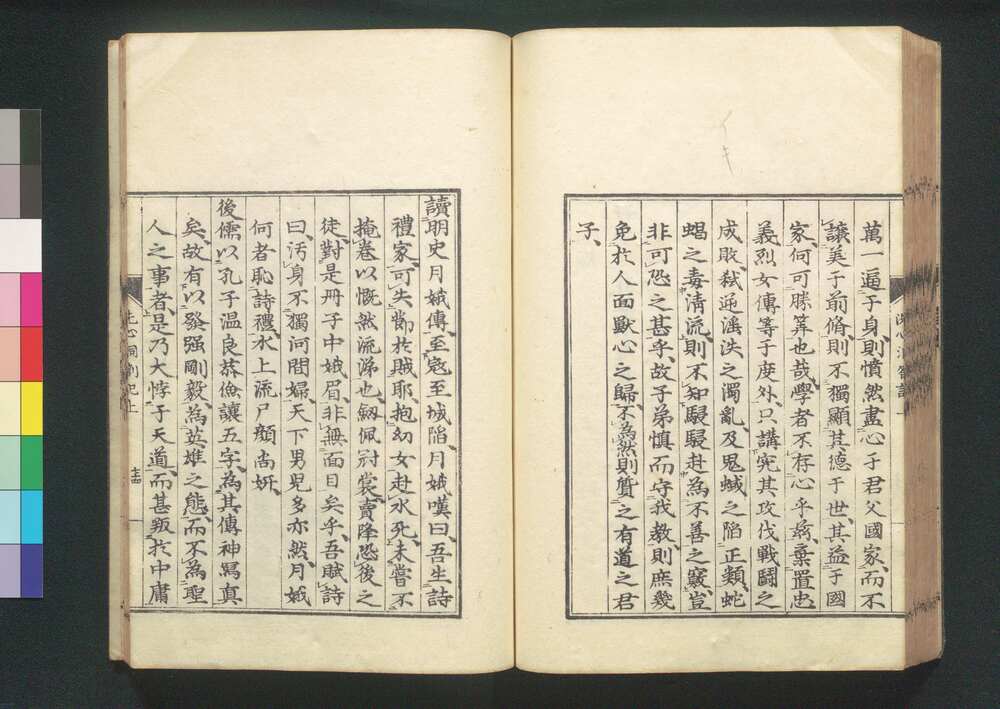 萬一遍于身則憤然盡心于君父國家而不
讓美于前脩則不獨顯其德于世其益于國
家何可勝筭也哉學者不存心乎茲棄置忠
義烈女傳等于度外只講究其攻伐戰鬪之
成敗弒逆滛泆之濁亂及鬼蜮之陷正類蛇
蝎之毒清流則不知駸駸赴為不善之竅豈
非可恐之甚乎故子弟慎而守我教則庶幾
免於人面獸心之歸不為然則質之有道之君
子
讀明史月娥傳至寇至城陷月娥嘆曰吾生詩
禮家可失節於賊耶抱幼女赴水死未嘗不
掩卷以慨然流涕也劔佩冠裳賣降恐後之
徒對是冊子中娥眉非無面目矣乎吾賦詩
曰汚身不獨河間婦天下男兒多亦然月娥
何者恥詩禮水上流尸顔尚妍
後儒以孔子温良恭儉讓五字為其傳神寫真
矣故有以發强剛毅為英雄之態而不為聖
人之事者是乃大悖于天道而甚叛於中庸
洗心洞劄記上